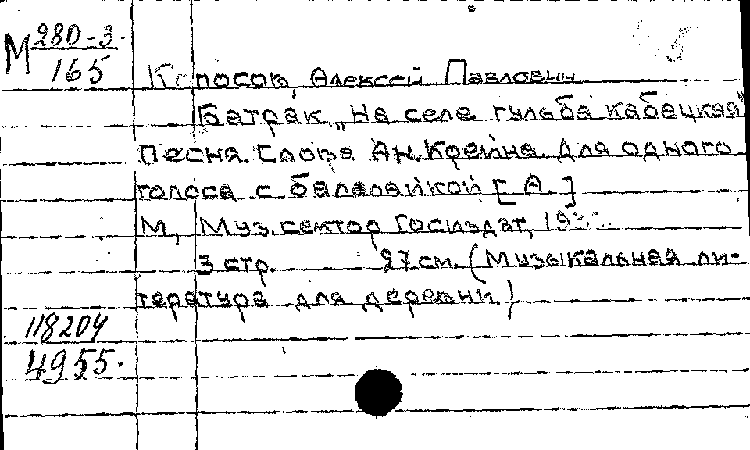 М 280-3
165
Колосов, Алексей Павлович
Батрак. „На селе гульба кабацкая"
Песня. Слова Ан. Крейна. Для одного
голоса с балалайкой [А.]
М., Муз. сектор Госиздат,
3 стр. 27 см. (Музыкальная ли-
тература для деревни)
118204
4955.